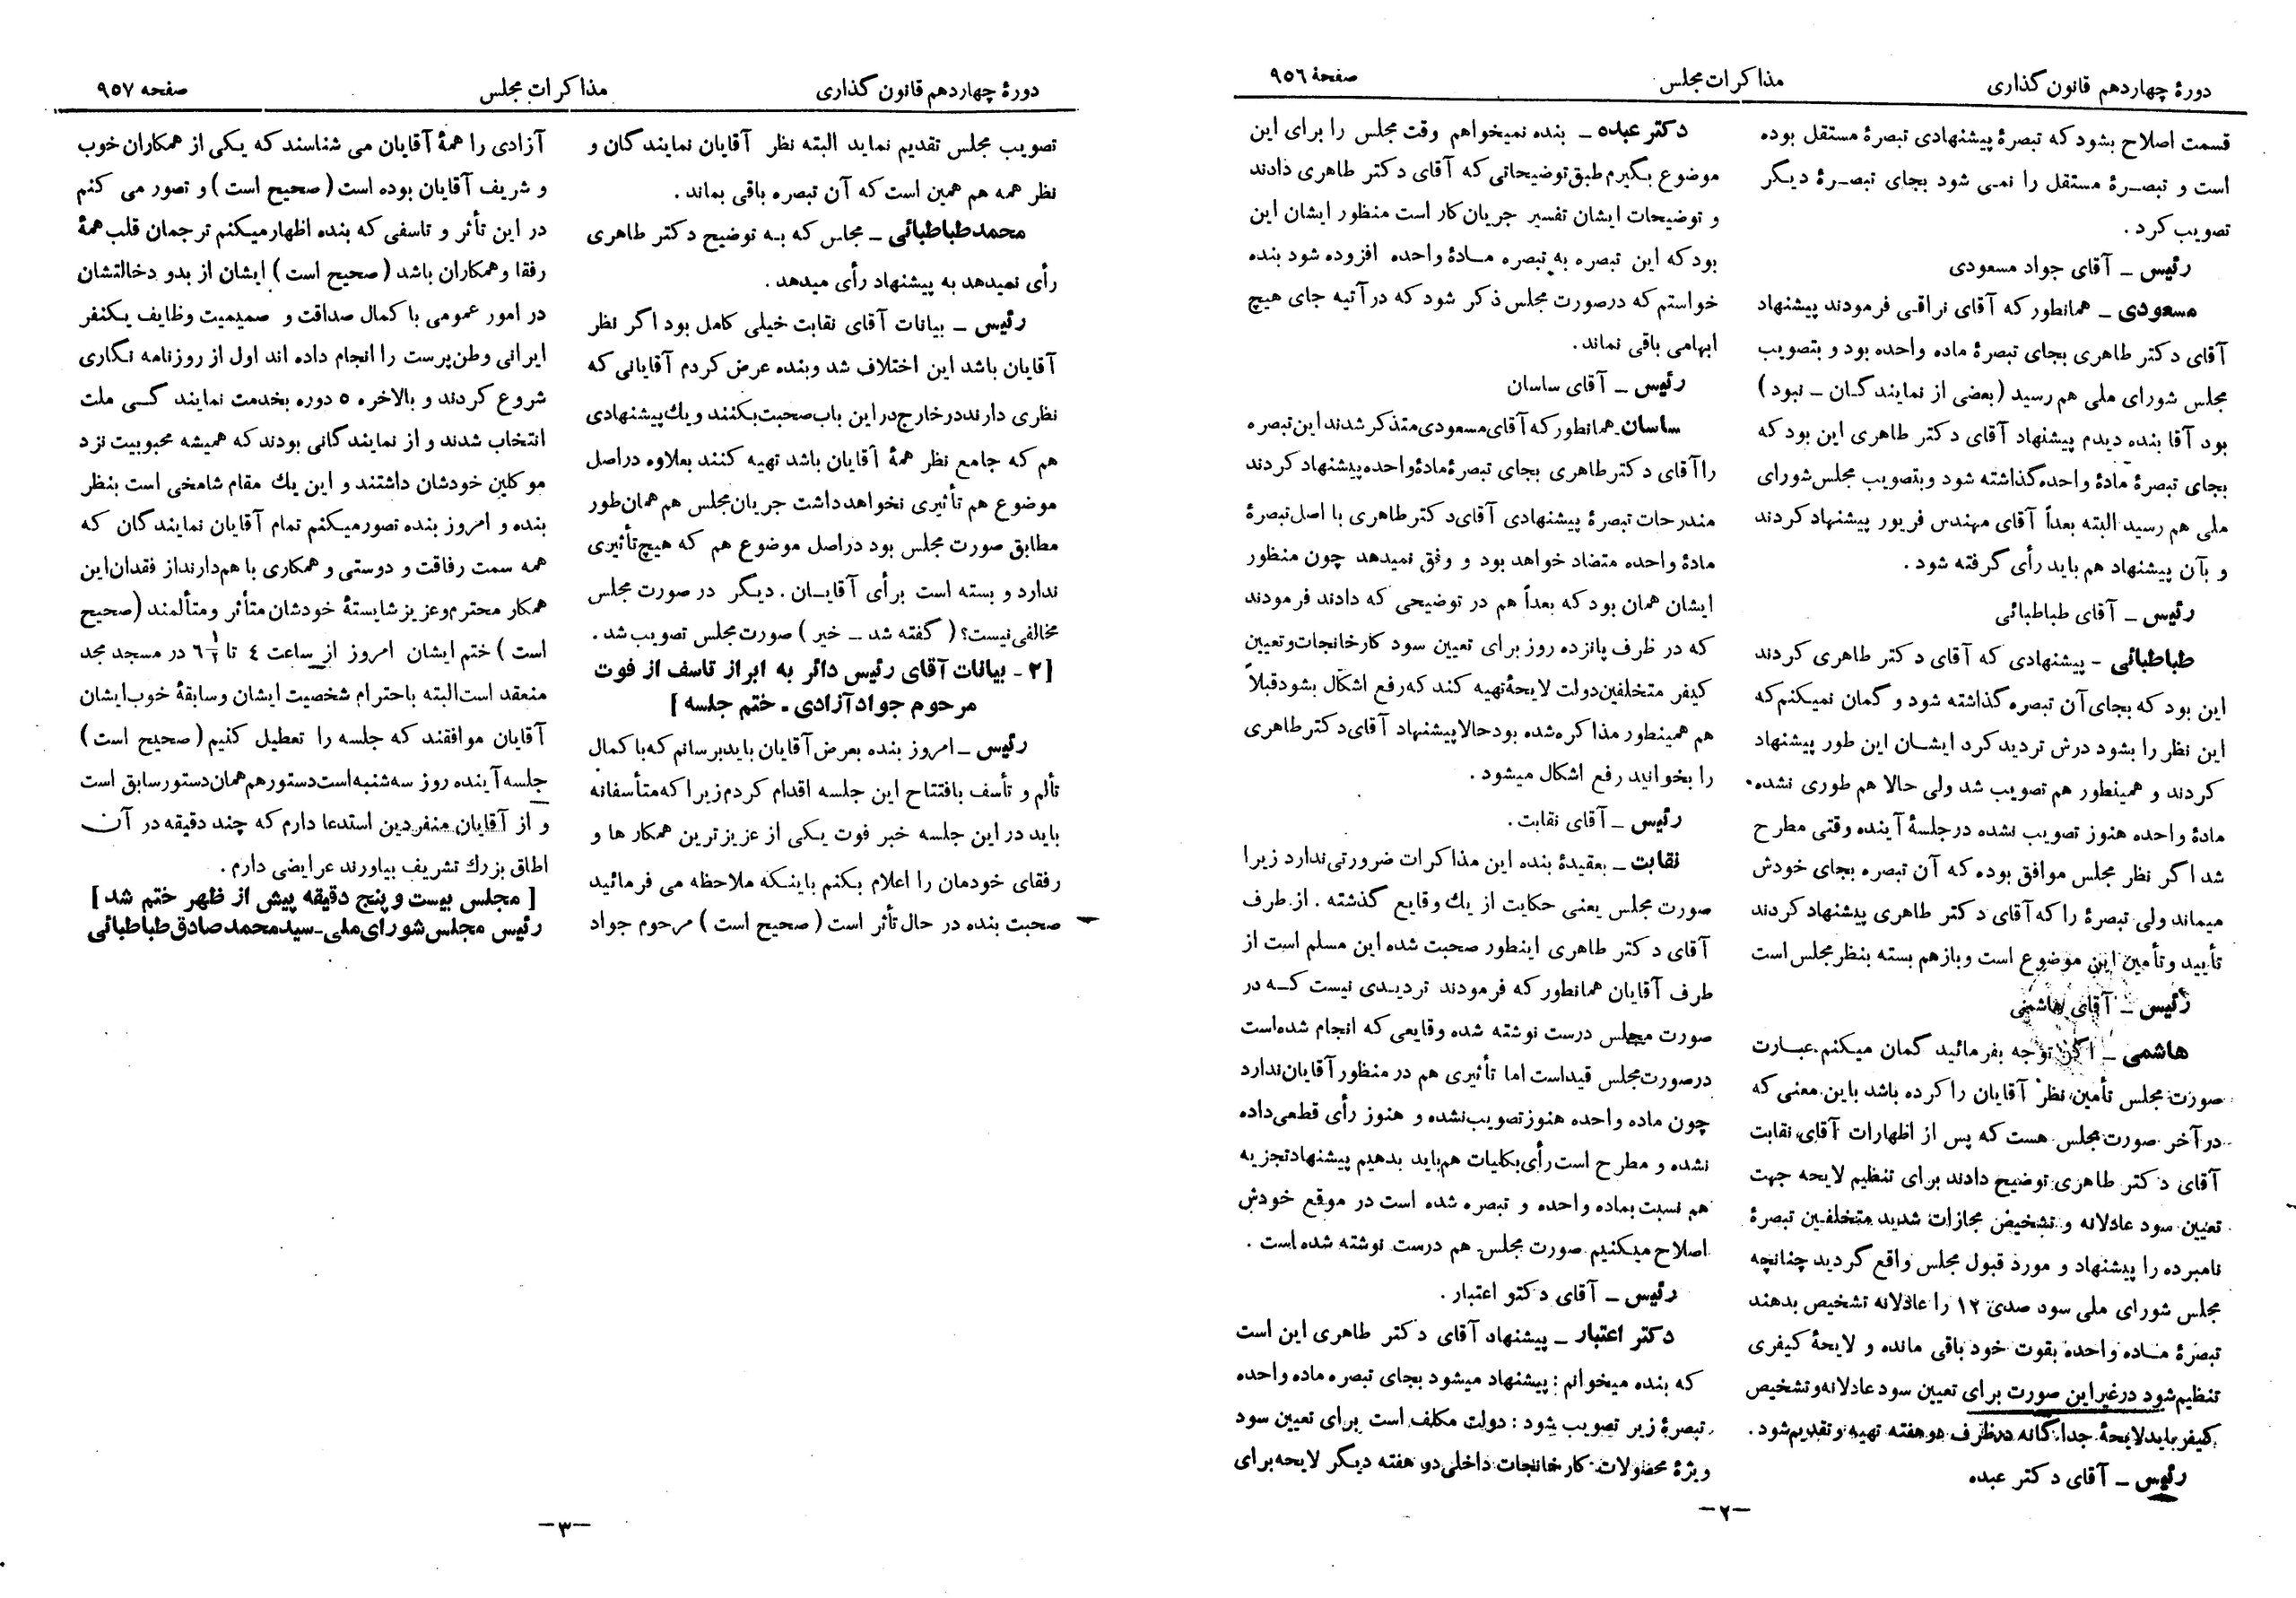 دورهٔ چهاردهم قانون گذاری
مذاکرات مجلس
صفحهٔ ۹۵۶
قسمت اصلاح بشود که تبصرهٔ پیشنهادی تبصرهٔ مستقل بوده
است و تبصرهٔ مستقل را نمی شود بجای تبصرهٔ دیگر
تصویب کرد .
رئیس ـ آقای جواد مسعودی
مسعودی ـ همانطور که آقای نراقی فرمودند پیشنهاد
آقای دکتر طاهری بجای تبصرهٔ ماده واحده بود و بتصویب
مجلس شورای ملی هم رسید (بعضی از نمایندگان ـ نبود)
بود آقا بنده دیدم پیشنهاد آقای دکتر طاهری این بود که
بجای تبصرهٔ مادهٔ واحده گذاشته شود وبتصویب مجلس شورای
ملی هم رسید البته بعداً آقای مهندس فریور پیشنهاد کردند
و بآن پیشنهاد هم باید رأی گرفته شود .
رئیس ـ آقای طباطبائی
طباطبائی - پیشنهادی که آقای دکتر طاهری کردند
این بود که بجای آن تبصره گذاشته شود و گمان نمیکنم که
این نظر را بشود درش تردید کرد ایشان این طور پیشنهاد
کردند و همینطور هم تصویب شد ولی حالا هم طوری نشده.
مادهٔ واحده هنوز تصویب نشده درجلسهٔ آینده وقتی مطرح
شد اگر نظر مجلس موافق بوده که آن تبصره بجای خودش
میماند ولی تبصرهٔ را که آقای دکتر طاهری پیشنهاد کردند
تأیید و تأمین این موضوع است و بازهم بسته بنظر مجلس است
رئیس ـ آقای هاشمی
هاشمی ـ اگر توجه بفرمائید گمان میکنم عبارت
صورت مجلس تأمین نظر آقایان را کرده باشد باین معنی که
در آخر صورت مجلس هست که پس از اظهارات آقای نقابت
آقای دکتر طاهری توضیح دادند برای تنظیم لایحه جهت
تعیین سود عادلانه و تشخیض مجازات شدید متخلفین تبصرهٔ
نامبرده را پیشنهاد و مورد قبول مجلس واقع گردید چنانچه
مجلس شورای ملی سود صدی ۱۲ را عادلانه تشخیص بدهند
تبصرهٔ ماده واحده بقوت خود باقی مانده و لایحهٔ کیفری
تنظیم شود درغیر این صورت برای تعیین سود عادلانه و تشخیص
کیفر باید لایحهٔ جداگانه درظرف دو هفته تهیه و تقدیم شود .
رئیس ـ آقای دکتر عبده
دکتر عبده ـ بنده نمیخواهم وقت مجلس را برای این
موضوع بگیرم طبق توضیحاتی که آقای دکتر طاهری دادند
و توضیحات ایشان تفسیر جریان کار است منظور ایشان این
بود که این تبصره به تبصره مادهٔ واحده افزوده شود بنده
خواستم که درصورت مجلس ذکر شود که درآتیه جای هیچ
ابهامی باقی نماند .
رئیس ـ آقای ساسان
ساسان ـ همانطور که آقای مسعودی متذکر شدند این تبصره
را آقای دکتر طاهری بجای تبصرهٔ مادهٔ واحده پیشنهاد کردند
مندرجات تبصرهٔ پیشنهادی آقای دکتر طاهری با اصل تبصرهٔ
مادهٔ واحده متضاد خواهد بود و وفق نمیدهد چون منظور
ایشان همان بود که بعداً هم در توضیحی که دادند فرمودند
که در ظرف پانزده روز برای تعیین سود کارخانجات و تعیین
کیفر متخلفین دولت لایحهٔ تهیه کند که رفع اشکال بشود قبلاً
هم همینطور مذاکره شده بود حالا پیشنهاد آقای دکتر طاهری
را بخوانید رفع اشکال میشود .
رئیس ـ آقای نقابت .
نقابت ـ بعقیدهٔ بنده این مذاکرات ضرورتی ندارد زیرا
صورت مجلس یعنی حکایت از یك وقایع گذشته . از طرف
آقای دکتر طاهری اینطور صحبت شده این مسلم است از
طرف آقایان همانطور که فرمودند تردیدی نیست که در
صورت مجلس درست نوشته شده وقایعی که انجام شده است
درصورت مجلس قید است اما تأثیری هم در منظور آقایان ندارد
چون ماده واحده هنوز تصویب نشده و هنوز رأی قطعی داده
نشده و مطرح است رأی بکلیات هم باید بدهیم پیشنهاد تجزیه
هم نسبت بماده واحده و تبصره شده است در موقع خودش
اصلاح میکنیم صورت مجلس هم درست نوشته شده است .
رئیس ـ آقای دکتو اعتبار .
دکتر اعتبار ـ پیشنهاد آقای دکتر طاهری این است
که بنده میخوانم : پیشنهاد میشود بجای تبصره ماده واحده
تبصرهٔ زیر تصویب شود : دولت مکلف است برای تعیین سود
ویژهٔ محصولات کارخانجات داخلی دو هفته دیگر لایحه برای
ـ۲ـ
دورهٔ چهاردهم قانون گذاری
مذاکرات مجلس
صفحه ۹۵۷
تصویب مجلس تقدیم نماید البته نظر آقایان نمایندگان و
نظر همه هم همین است که آن تبصره باقی بماند .
محمد طباطبائی ـ مجلس که به توضیح دکتر طاهری
رأی نمیدهد به پیشنهاد رأی میدهد .
رئیس ـ بیانات آقای نقابت خیلی کامل بود اگر نظر
آقایان باشد این اختلاف شد وبنده عرض کردم آقایانی که
نظری دارند درخارج دراین باب صحبت بکنند و یك پیشنهادی
هم که جامع نظر همهٔ آقایان باشد تهیه کنند بعلاوه دراصل
موضوع هم تأثیری نخواهد داشت جریان مجلس هم همان طور
مطابق صورت مجلس بود دراصل موضوع هم که هیچ تأثیری
ندارد و بسته است برأی آقایان . دیگر در صورت مجلس
مخالفی نیست؟ ( گفته شد ـ خیر ) صورت مجلس تصویب شد .
[۲ - بیانات آقای رئیس دائر به ابراز تاسف از فوت
مرحوم جواد آزادی - ختم جلسه ]
رئیس ـ امروز بنده بعرض آقایان باید برسانم که با کمال
تألم و تأسف بافتتاح این جلسه اقدام کردم زیرا که متأسفانه
باید در این جلسه خبر فوت یکی از عزیزترین همکارها و
رفقای خودمان را اعلام بکنم باینکه ملاحظه می فرمائید
صحبت بنده در حال تأثر است ( صحیح است ) مرحوم جواد
آزادی را همهٔ آقایان می شناسند که یکی از همکاران خوب
و شریف آقایان بوده است ( صحیح است ) و تصور می کنم
در این تأثر و تاسفی که بنده اظهار میکنم ترجمان قلب همهٔ
رفقا و همکاران باشد ( صحیح است ) ایشان از بدو دخالتشان
در امور عمومی با کمال صداقت و صمیمیت وظایف یکنفر
ایرانی وطن پرست را انجام داده اند اول از روزنامه نگاری
شروع کردند و بالاخره ۵ دوره بخدمت نمایندگی ملت
انتخاب شدند و از نمایندگانی بودند که همیشه محبوبیت نزد
موکلین خودشان داشتند و این یك مقام شامخی است بنظر
بنده و امروز بنده تصور میکنم تمام آقایان نمایندگان که
همه سمت رفاقت و دوستی و همکاری با هم دارند از فقدان این
همکار محترم و عزیز شایستهٔ خودشان متأثر و متألمند (صحیح
است ) ختم ایشان امروز از ساعت ٤ تا ۶ ۱/۲ در مسجد مجد
منعقد است البته باحترام شخصیت ایشان و سابقهٔ خوب ایشان
آقایان موافقند که جلسه را تعطیل کنیم ( صحیح است )
جلسه آینده روز سه شنبه است دستور هم همان دستور سابق است
و از آقایان منفردین استدعا دارم که چند دقیقه در آن
اطاق بزرك تشریف بیاورند عرایضی دارم .
[ مجلس بیست و پنج دقیقه پیش از ظهر ختم شد ]
رئیس مجلس شورای ملی ـ سید محمد صادق طباطبائی
ـ۳ـ